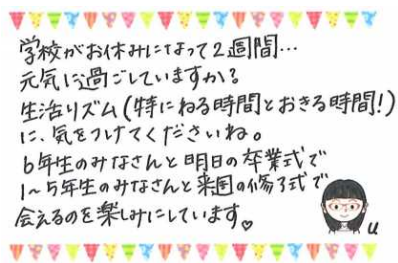 学校がお休みになって2週間…
元気に過ごしていますか?
生活リズム(特にねる時間とおきる時間!)
に、気をつけてくださいね。
6年生のみなさんと明日の卒業式で
1~5年生のみなさんと来週の修了式で
会えるのを楽しみにしています♡
u